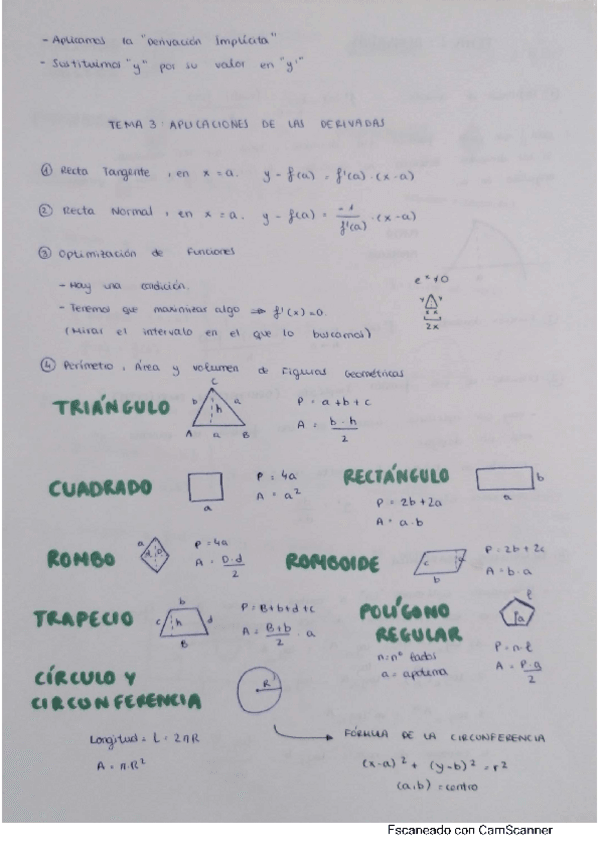 - Aplicamos la "Derivación Implícita"
- Sustituimos "y" por su valor en "y'"
TEMA 3: APLICACIONES DE LAS DERIVADAS
① Recta Tangente, en x = a. y - f(a) = f'(a) · (x - a)
② Recta Normal, en x = a. y - f(a) = -1/f'(a) · (x - a)
③ Optimización de Funciones
- Hay una condición.
- Tenemos que maximizar algo ⇒ f'(x) = 0.
(Mirar el intervalo en el que lo buscamos)
e^x ≠ 0
Y Y
x x
2x
④ Perímetro, Área y volumen de Figuras Geométricas
TRIÁNGULO
C
b h a
A a B
P = a + b + c
A = b · h / 2
CUADRADO
a
P = 4a
A = a²
RECTÁNGULO
b
a
P = 2b + 2a
A = a · b
ROMBO
a
d D
P = 4a
A = D · d / 2
ROMBOIDE
c
b
P = 2b + 2c
A = b · a
TRAPECIO
b
c h d
B
P = B + b + d + c
A = B + b / 2 · a
POLÍGONO
REGULAR
n = nº lados
a = apotema
l
a
P = n · l
A = P · a / 2
CÍRCULO Y
CIRCUNFERENCIA
R
Longitud = L = 2πR
A = π · R²
FÓRMULA DE LA CIRCUNFERENCIA
(x - a)² + (y - b)² = r²
(a, b) = centro
Escaneado con CamScanner